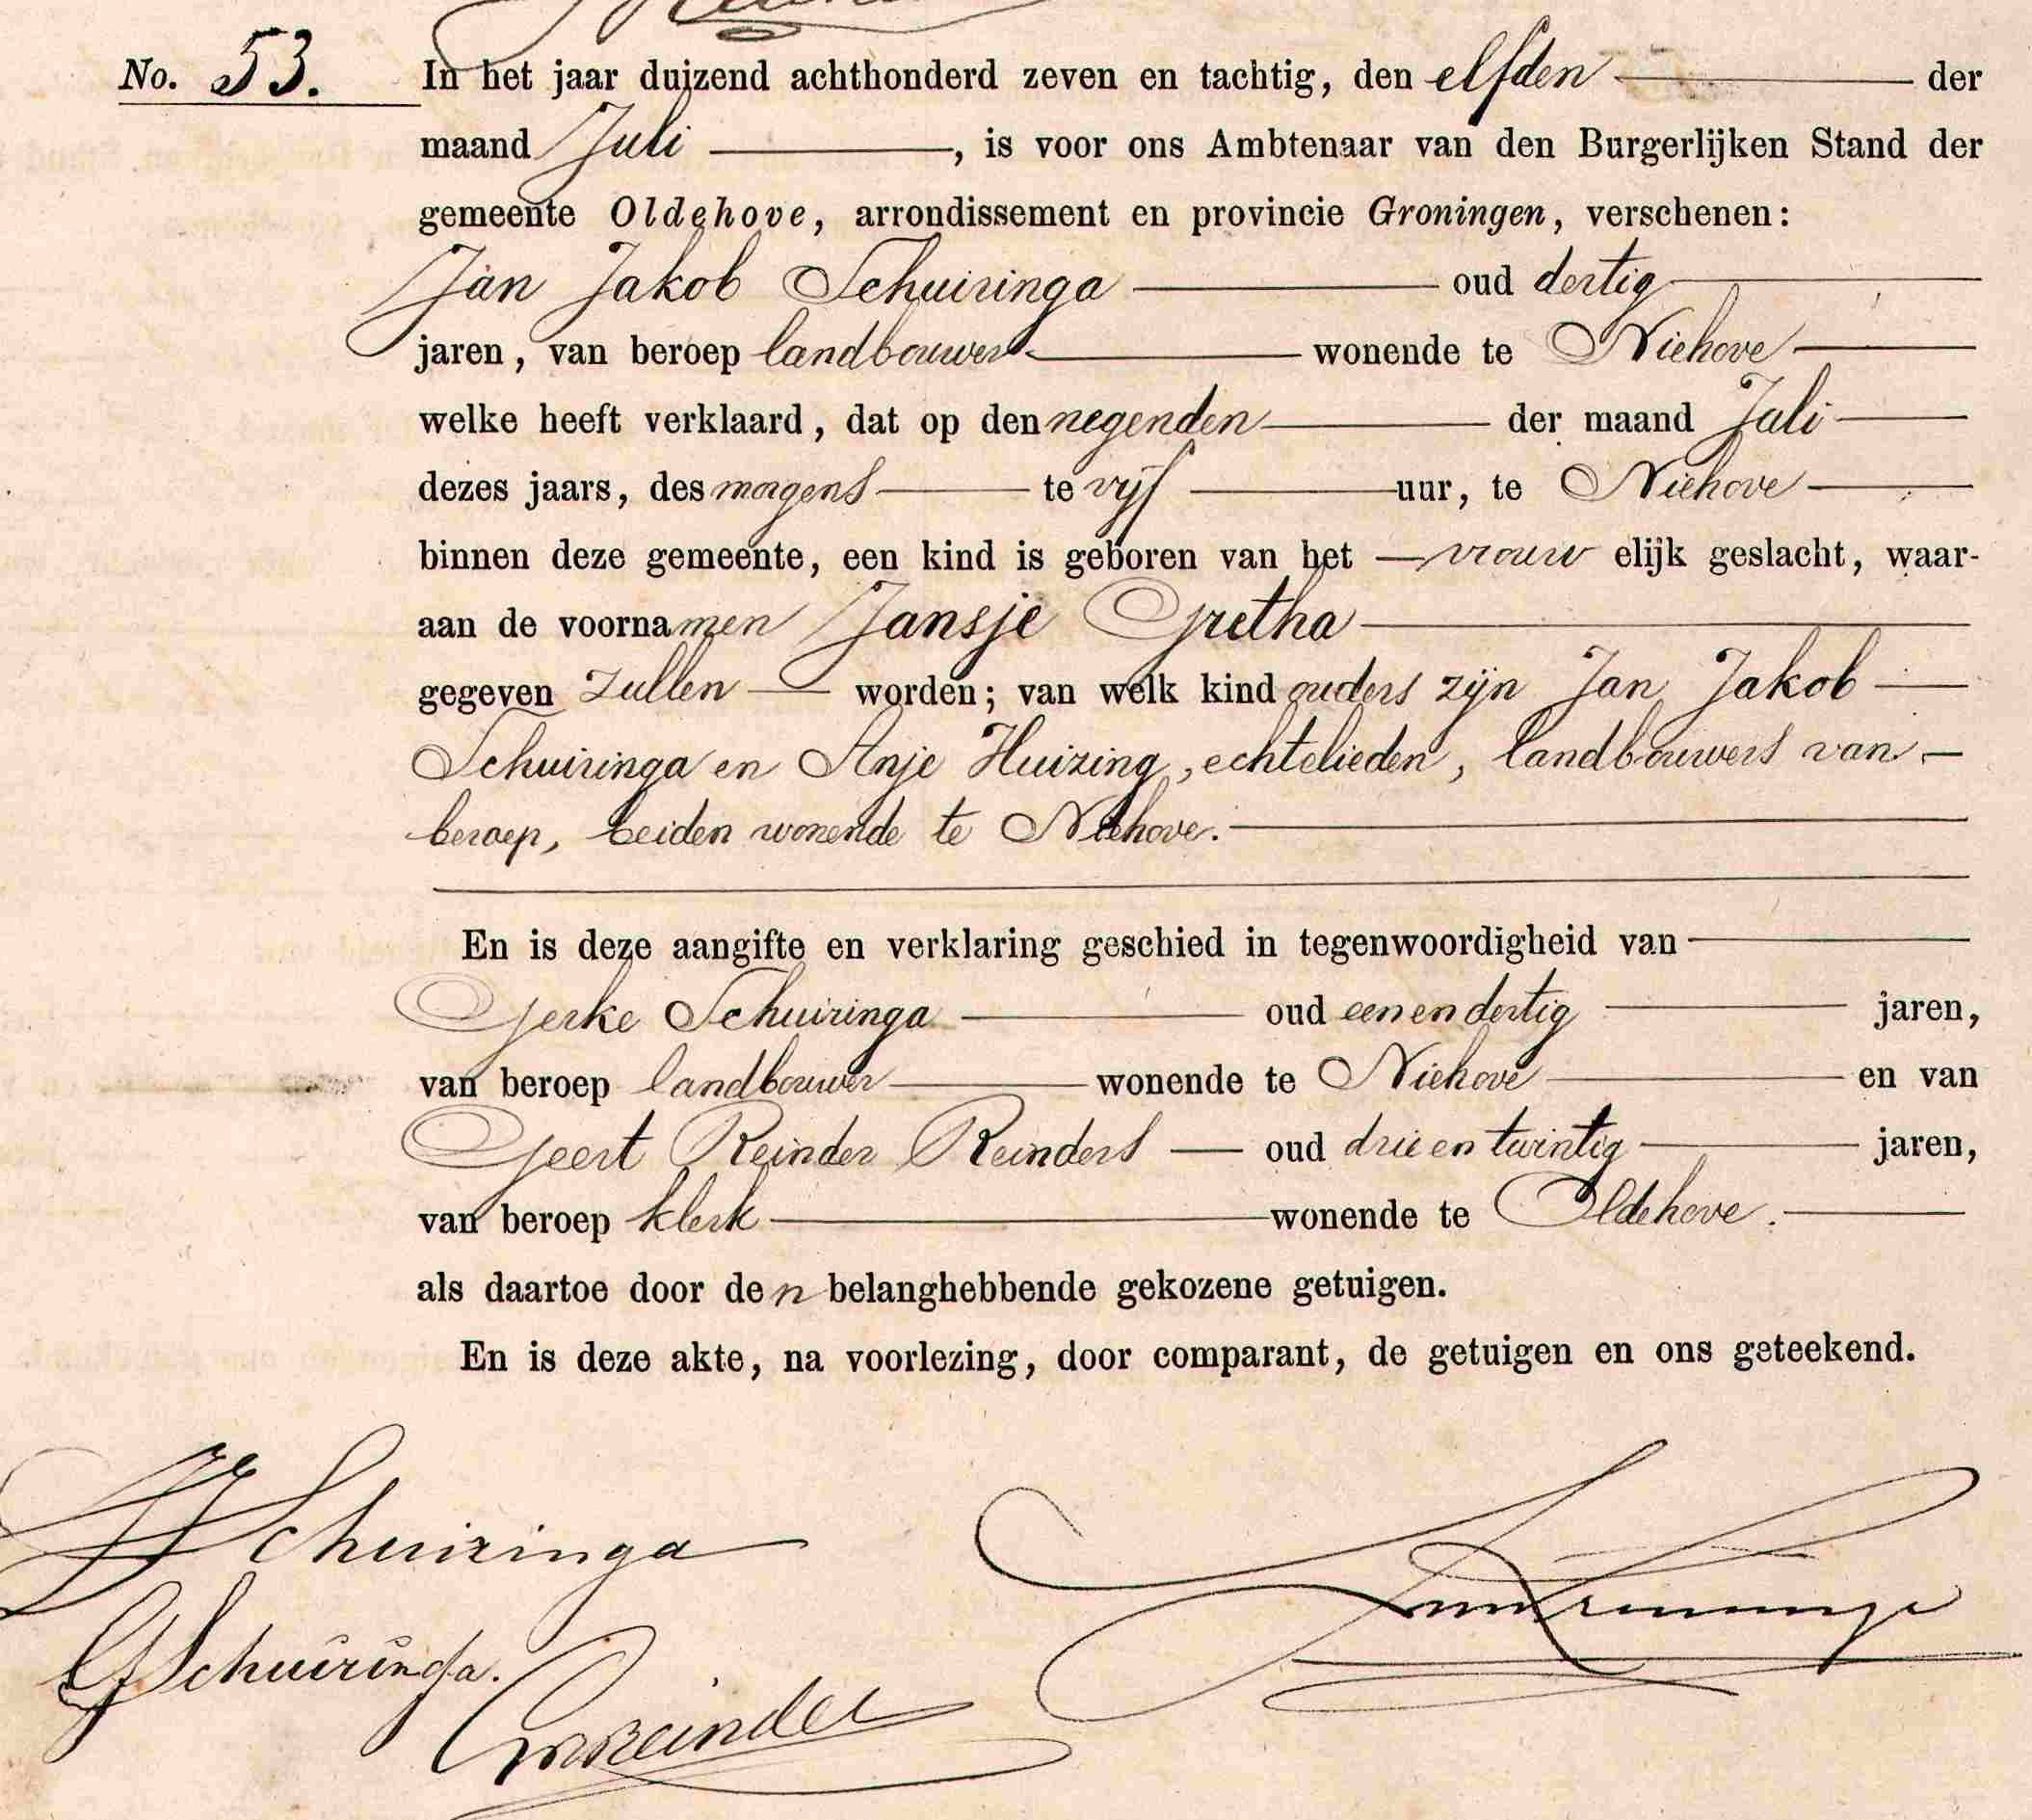 No. 53. In het jaar duizend achthonderd zeven en tachtig, den elfden der
maand Juli, is voor ons Ambtenaar van den Burgerlijken Stand der
gemeente Oldehove, arrondissement en provincie Groningen, verschenen:
Jan Jakob Schuiringa oud dertig
jaren, van beroep landbouwer wonende te Niehove
welke heeft verklaard, dat op den negenden der maand Juli
dezes jaars, des morgens te vijf uur, te Niehove
binnen deze gemeente, een kind is geboren van het vrouwelijk geslacht, waar-
aan de voornamen Jansje Gretha
gegeven zullen worden; van welk kind ouders zijn Jan Jakob
Schuiringa en Anje Huizing, echtelieden, landbouwers van
beroep, beiden wonende te Niehove.
En is deze aangifte en verklaring geschied in tegenwoordigheid van
Gerke Schuiringa oud een en dertig jaren,
van beroep landbouwer wonende te Niehove en van
Geert Reinder Reinders oud drie en twintig jaren,
van beroep klerk wonende te Oldehove.
als daartoe door den belanghebbende gekozene getuigen.
En is deze akte, na voorlezing, door comparant, de getuigen en ons geteekend.
JJSchuiringa
GSchuiringa.
GRReinders